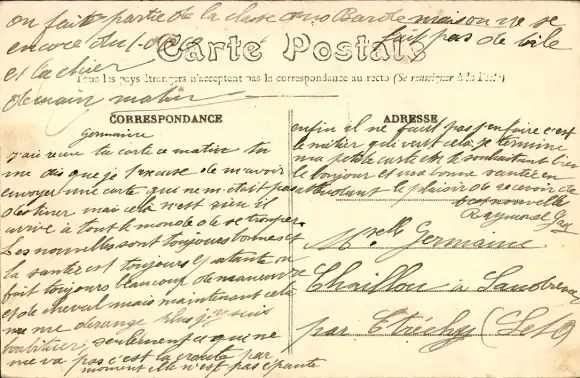 on fait partie de la classe
mais on ne se
encore du
fait pas de bile
et la chier
demain matin
Carte Postale
Tous les pays étrangers n'acceptent pas la correspondance au recto (Se renseigner à la Poste)
CORRESPONDANCE
Germaine
J'ai reçu ta carte ce matin tu
me dis que je t'excuse de m'avoir
envoyer une carte qui ne m'était pas
destiner mais cela n'est rien il
arrive à tout le monde de se tromper
Les nouvelles sont toujours bonnes et
la santé est toujours
fait toujours beaucoup de manœuvre
et de cheval mais maintenant cela
ne me dérange plus j'y suis
habituer, seulement ce qui ne
me va pas c'est la croute par
moment elle n'est pas épatante
ADRESSE
enfin il ne faut pas s'en faire c'est
le métier qui veut cela je termine
ma petite carte en te souhaitant bien
le bonjour et une bonne santée en
attendant le plaisir de recevoir de
tes nouvelles
Raymond
Melle Germaine
Chaillou à
par Etréchy (S et O)